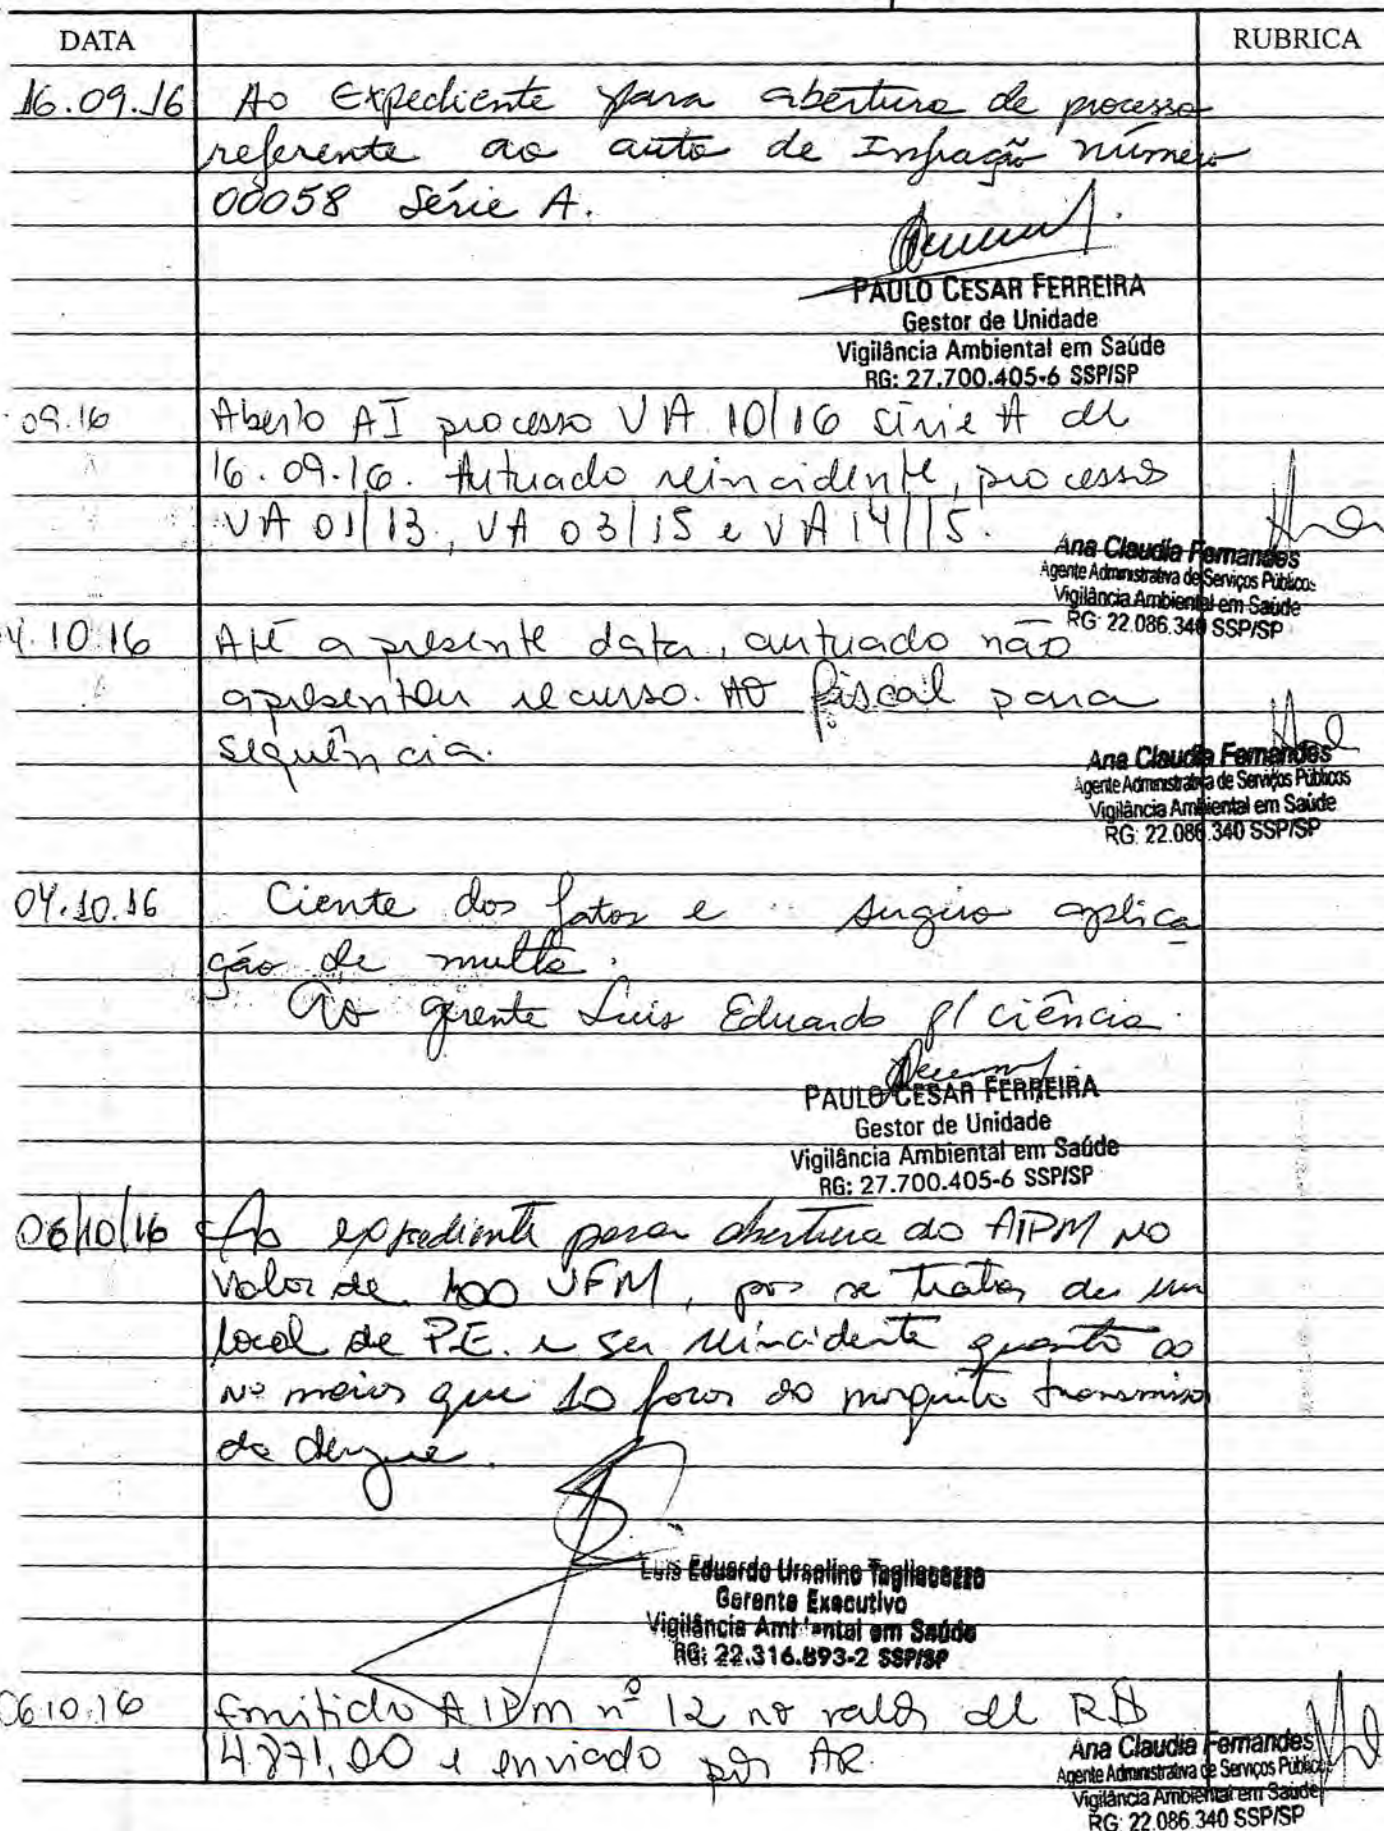 DATA
RUBRICA
16.09.16 Ao Expediente para abertura de processo
referente ao auto de Infração número
00058 Série A.
PAULO CESAR FERREIRA
Gestor de Unidade
Vigilância Ambiental em Saúde
RG: 27.700.405-6 SSP/SP
09.16 Aberto AI processo VA 10/16 série A de
16.09.16. Autuado reincidente, processos
VA 01/13, VA 03/15 e VA 14/15.
Ana Claudia Fernandes
Agente Administrativa de Serviços Públicos
Vigilância Ambiental em Saúde
RG: 22.086.340 SSP/SP
4.10.16 Até a presente data, autuado não
apresentou recurso. Ao fiscal para
sequência.
Ana Claudia Fernandes
Agente Administrativa de Serviços Públicos
Vigilância Ambiental em Saúde
RG: 22.086.340 SSP/SP
04.10.16 Ciente dos fatos e sugiro aplica
ção de multa.
Ao gerente Luis Eduardo p/ ciência.
PAULO CESAR FERREIRA
Gestor de Unidade
Vigilância Ambiental em Saúde
RG: 27.700.405-6 SSP/SP
06/10/16 Ao expediente para abertura do AIPM no
valor de UFM, por se tratar de um
local de P.E. e ser reincidente quanto ao
nº maior que 10 focos do mosquito transmissor
da dengue.
Luis Eduardo Ursolino Tagliacozzo
Gerente Executivo
Vigilância Ambiental em Saúde
RG: 22.316.893-2 SSP/SP
06.10.16 Emitido AIPM nº 12 no valor de R$
4.871,00 e enviado por AR.
Ana Claudia Fernandes
Agente Administrativa de Serviços Públicos
Vigilância Ambiental em Saúde
RG: 22.086.340 SSP/SP